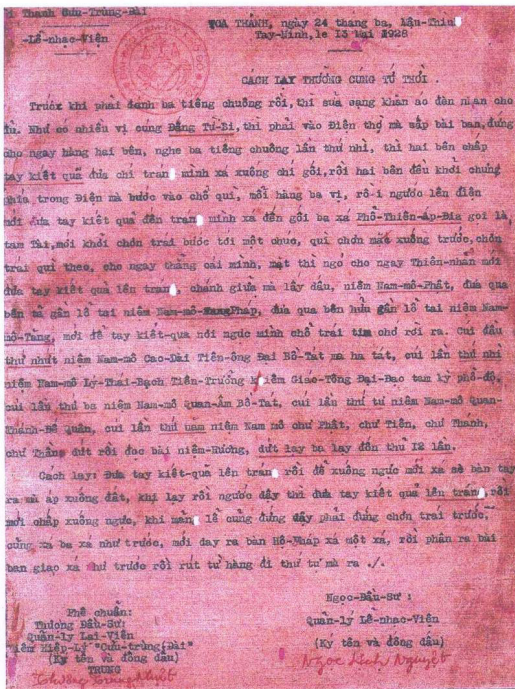 i Thanh Cưu-Trùng-Đài
-Lễ-nhạc-Viện
TOA THÁNH, ngày 24 thang ba, Mậu-Thiu
Tay-Ninh, le 13 Mai 1928
CÁCH LAY THƯỜNG CUNG TỨ THỜI .
Trước khi phải đanh ba tiếng chuông rồi, thì sửa sạng khăn ao đèn nhan cho
đủ. Như có nhiều vị cúng Đấng Từ-Bi, thì phải vào Điện thợ mà sắp bài ban, đứng
cho ngay hàng hai bên, nghe ba tiếng chuông lần thư nhì, thì hai bên chấp
tay kiết quả đưa chi tran minh xá xuông chí gối, rồi hai bên đều khởi chưng
phía trong Điện mà bước vào chỗ qui, mỗi hàng ba vị, rồ-i ngước lên điện
mới đưa tay kiết quả đến tran minh xa đến gối ba xa Phổ-Thiên-Áp-Đia goi là
tam Tài, mới khởi chơn trai bước tới một chúc, qui chơn mặt xuống trước, chơn
trái qui theo, cho ngay thẳng cái mình, mặt thì ngó cho ngay Thiên-nhãn mới
đưa tay kiết quả lên tran, chánh giưa mà lấy dấu, niệm Nam-mô-Phật, đưa qua
bên tả gần lổ tai niệm Nam-mô-Pháp, đưa qua bên hửu gần lổ tai niệm Nam-
mô-Tăng, mới để tay kiết-qua nơi ngưc mình chỗ trai tim chớ rơi ra. Cui đầu
thư nhứt niệm Nam-mô Cao-Đài Tiên-ông Đai Bồ-Tat ma ha tat, cui lần thư nhì
niệm Nam-mô Lý-Thai-Bạch Tiên-Trưởng kiêm Giao-Tông Đại-Đao tam kỳ phổ-độ,
cui lần thư ba niệm Nam-mô Quan-Âm Bồ-Tat, cui lần thư tư niệm Nam-mô Quan-
Thánh-Đế Quân, cui lần thư năm niệm Nam mô chư Phật, chư Tiên, chư Thanh,
chư Thần dứt rồi đoc bài niệm-Hương, dưt lay ba lay đến thư 12 lần.
Cách lay: Đưa tay kiết-quả lên tran rồi để xuống ngưc mới xa sè bàn tay
ra mà áp xuống đât, khi lay rồi ngước dậy thì đưa tay kiết quả lên trán rồi
mới chấp xuống ngưc, khi mãn lễ cung đưng dậy phải đưng chơn trái trước,
cũng xa ba xá như trước, mới day ra bàn Hộ-Pháp xá một xá, rồi phân ra bài
ban giao xá như trước rồi rút từ hàng đi thứ tư mà ra ./.
Phê chuẩn:
Thương Đầu-Sư:
Quản-lý Lai-Viên
Kiêm Hiệp-Lý "Cưu-trùng-Đài"
(Ký tên và đóng dấu)
TRUNG
Thương Trung Nhựt
Ngoc-Đầu-Sư :
Quản-lý Lễ-nhac-Viên
(Ký tên và đóng dấu)
Ngọc Lịch Nguyệt